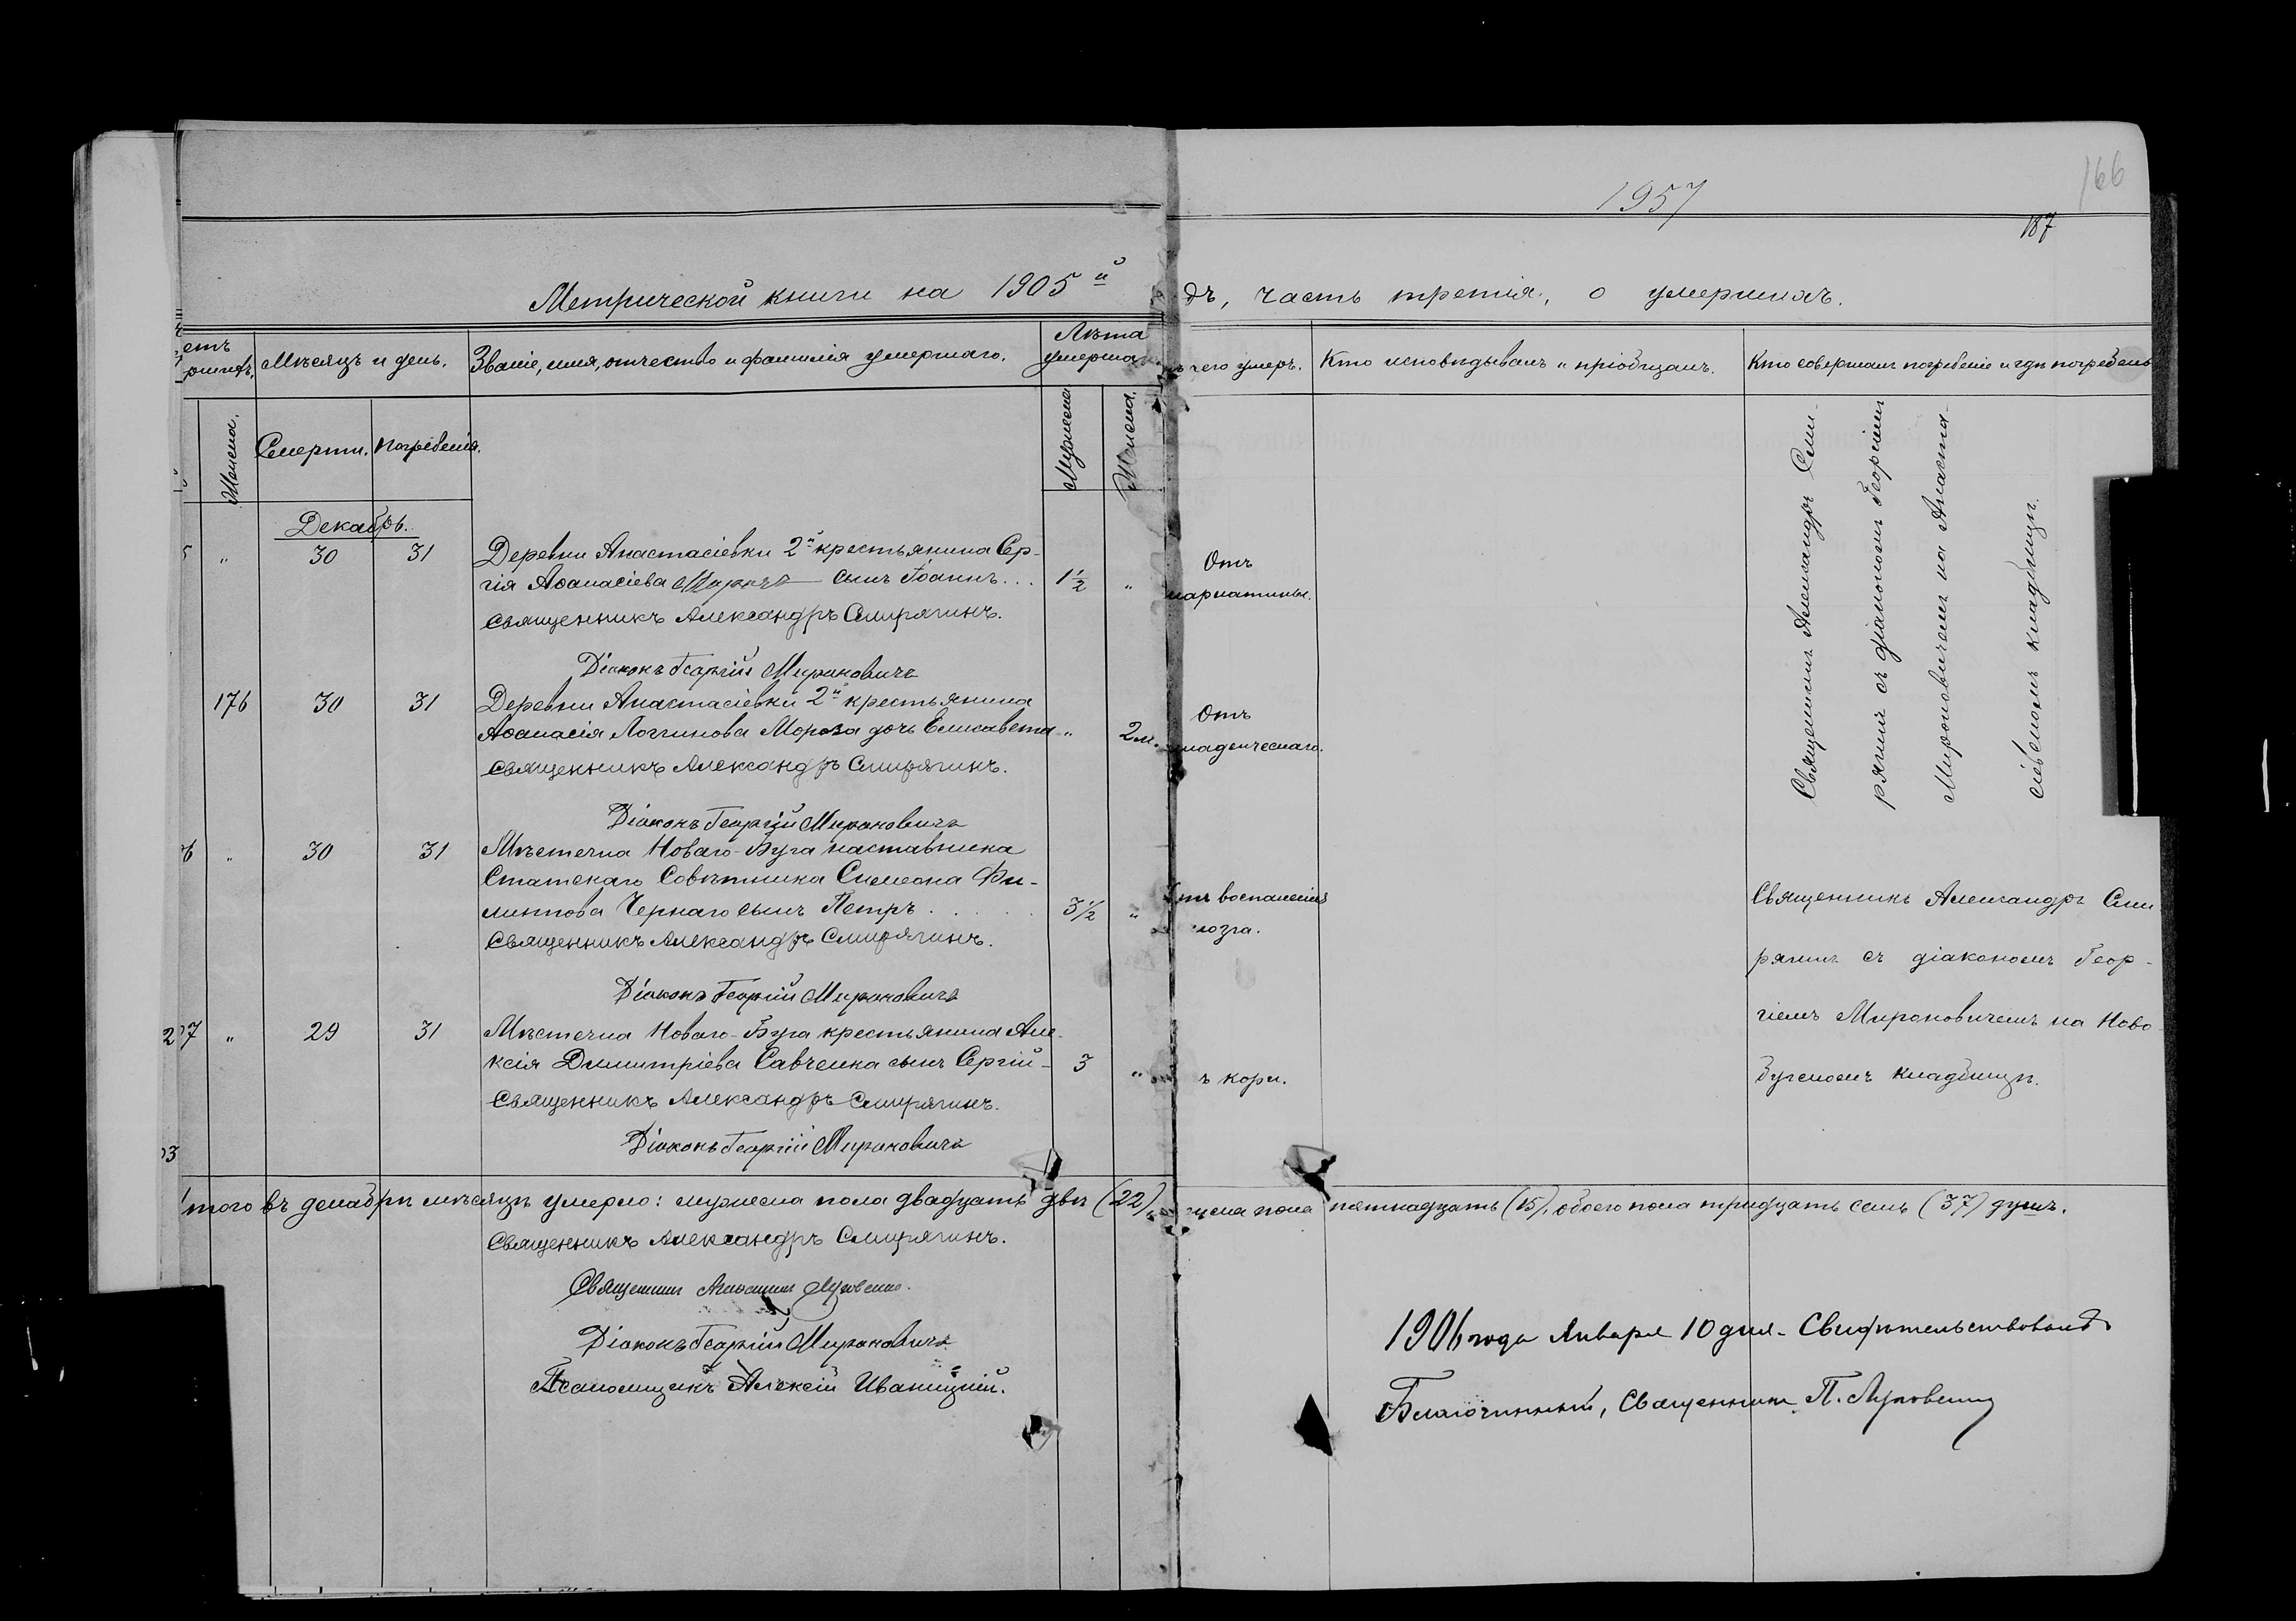 166
1957
187
Метрической книги на 1905й
дъ, часть третія, о умершихъ.
етъ
ршихъ.
Мѣсяцъ и день.
Званіе, имя, отчество и фамилія умершаго.
Лѣта
умерша
чего умеръ.
Кто исповѣдывалъ и пріобщалъ.
Кто совершалъ погребеніе и гдѣ погребенъ
Женска.
Смерти.
Погребенія.
Мужеска
Женска.
Декабрь.
5 " 30 31 Деревни Анастасіевки 2й крестьянина Сер-
гія Аѳанасіева сынъ Іоаннъ... 1½ "
Отъ
скарлатины.
Священникъ Александръ Смирягинъ.
Діаконъ Георгій Мироновичъ
Священникъ Александръ Сми-
рягинъ съ діакономъ Георгіемъ
Мироновичемъ на Анаста-
сіевскомъ кладбищѣ.
176 30 31 Деревни Анастасіевки 2й крестьянина
Аѳанасія Логгинова Мороза дочь Елисавета " 2 м.
Отъ
младенческаго.
Священникъ Александръ Смирягинъ.
Діаконъ Георгій Мироновичъ
6 " 30 31 Мѣстечка Новаго-Буга наставника
Статскаго Совѣтника Симеона Фи-
липпова Чернаго сынъ Петръ..... 3½ "
тъ воспаленія
мозга.
Священникъ Александръ Смирягинъ.
Діаконъ Георгій Мироновичъ
Священникъ Александръ Сми
рягинъ съ діакономъ Геор-
гіемъ Мироновичемъ на Ново-
бугскомъ кладбищѣ.
207 " 29 31 Мѣстечка Новаго-Буга крестьянина Але-
ксія Димитріева Савченка сынъ Сергій- 3 "
ъ кори.
Священникъ Александръ Смирягинъ.
Діаконъ Георгій Мироновичъ
03
того въ декабрѣ мѣсяцѣ умерло: мужеска пола двадцать двѣ (22), нска пола пятнадцать (15), обоего пола тридцать семь (37) душъ.
Священникъ Александръ Смирягинъ.
Священникъ
Діаконъ Георгій Мироновичъ
Псаломщикъ Алексій Иваницкій.
1906 года Января 10 дня. Свидѣтельствовалъ
Благочинный, Священникъ П.